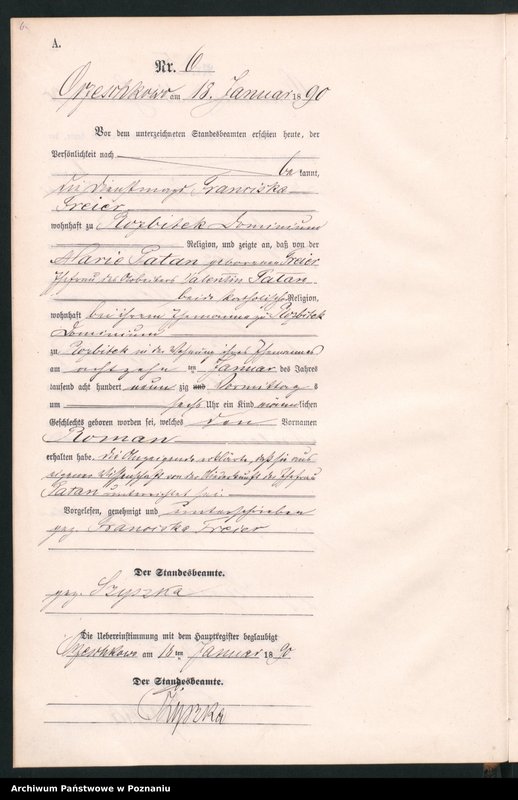 A.
Nr. 6
Orzeschkowo am 18. Januar 1890
Vor dem unterzeichneten Standesbeamten erschien heute, der
Persönlichkeit nach
be kannt,
die Dienstmagd Franciska
Freier
wohnhaft zu Rozbitek Dominium
Religion, und zeigte an, daß von der
Marie Patan geborenen Freier
Ehefrau des Arbeiters Valentin Patan
beide katholischer Religion,
wohnhaft bei ihrem Ehemanne zu Rozbitek
Dominium
zu Rozbitek in der Wohnung ihres Ehemannes
am achtzehn ten Januar des Jahres
tausend acht hundert neun zig und Vormittag s
um sechs Uhr ein Kind männlichen
Geschlechts geboren worden sei, welches den Vornamen
Roman
erhalten habe. Die Anzeigende erklärte, daß sie aus
eigener Wissenschaft von der Niederkunft der Ehefrau
Patan unterrichtet sei
Vorgelesen, genehmigt und unterschrieben
gez. Franciska Freier
Der Standesbeamte.
gez. Szyszka
Die Uebereinstimmung mit dem Hauptregister beglaubigt
Orzeschkowo am 18 ten Januar 1890
Der Standesbeamte.
Szyszka
Archiwum Państwowe w Poznaniu